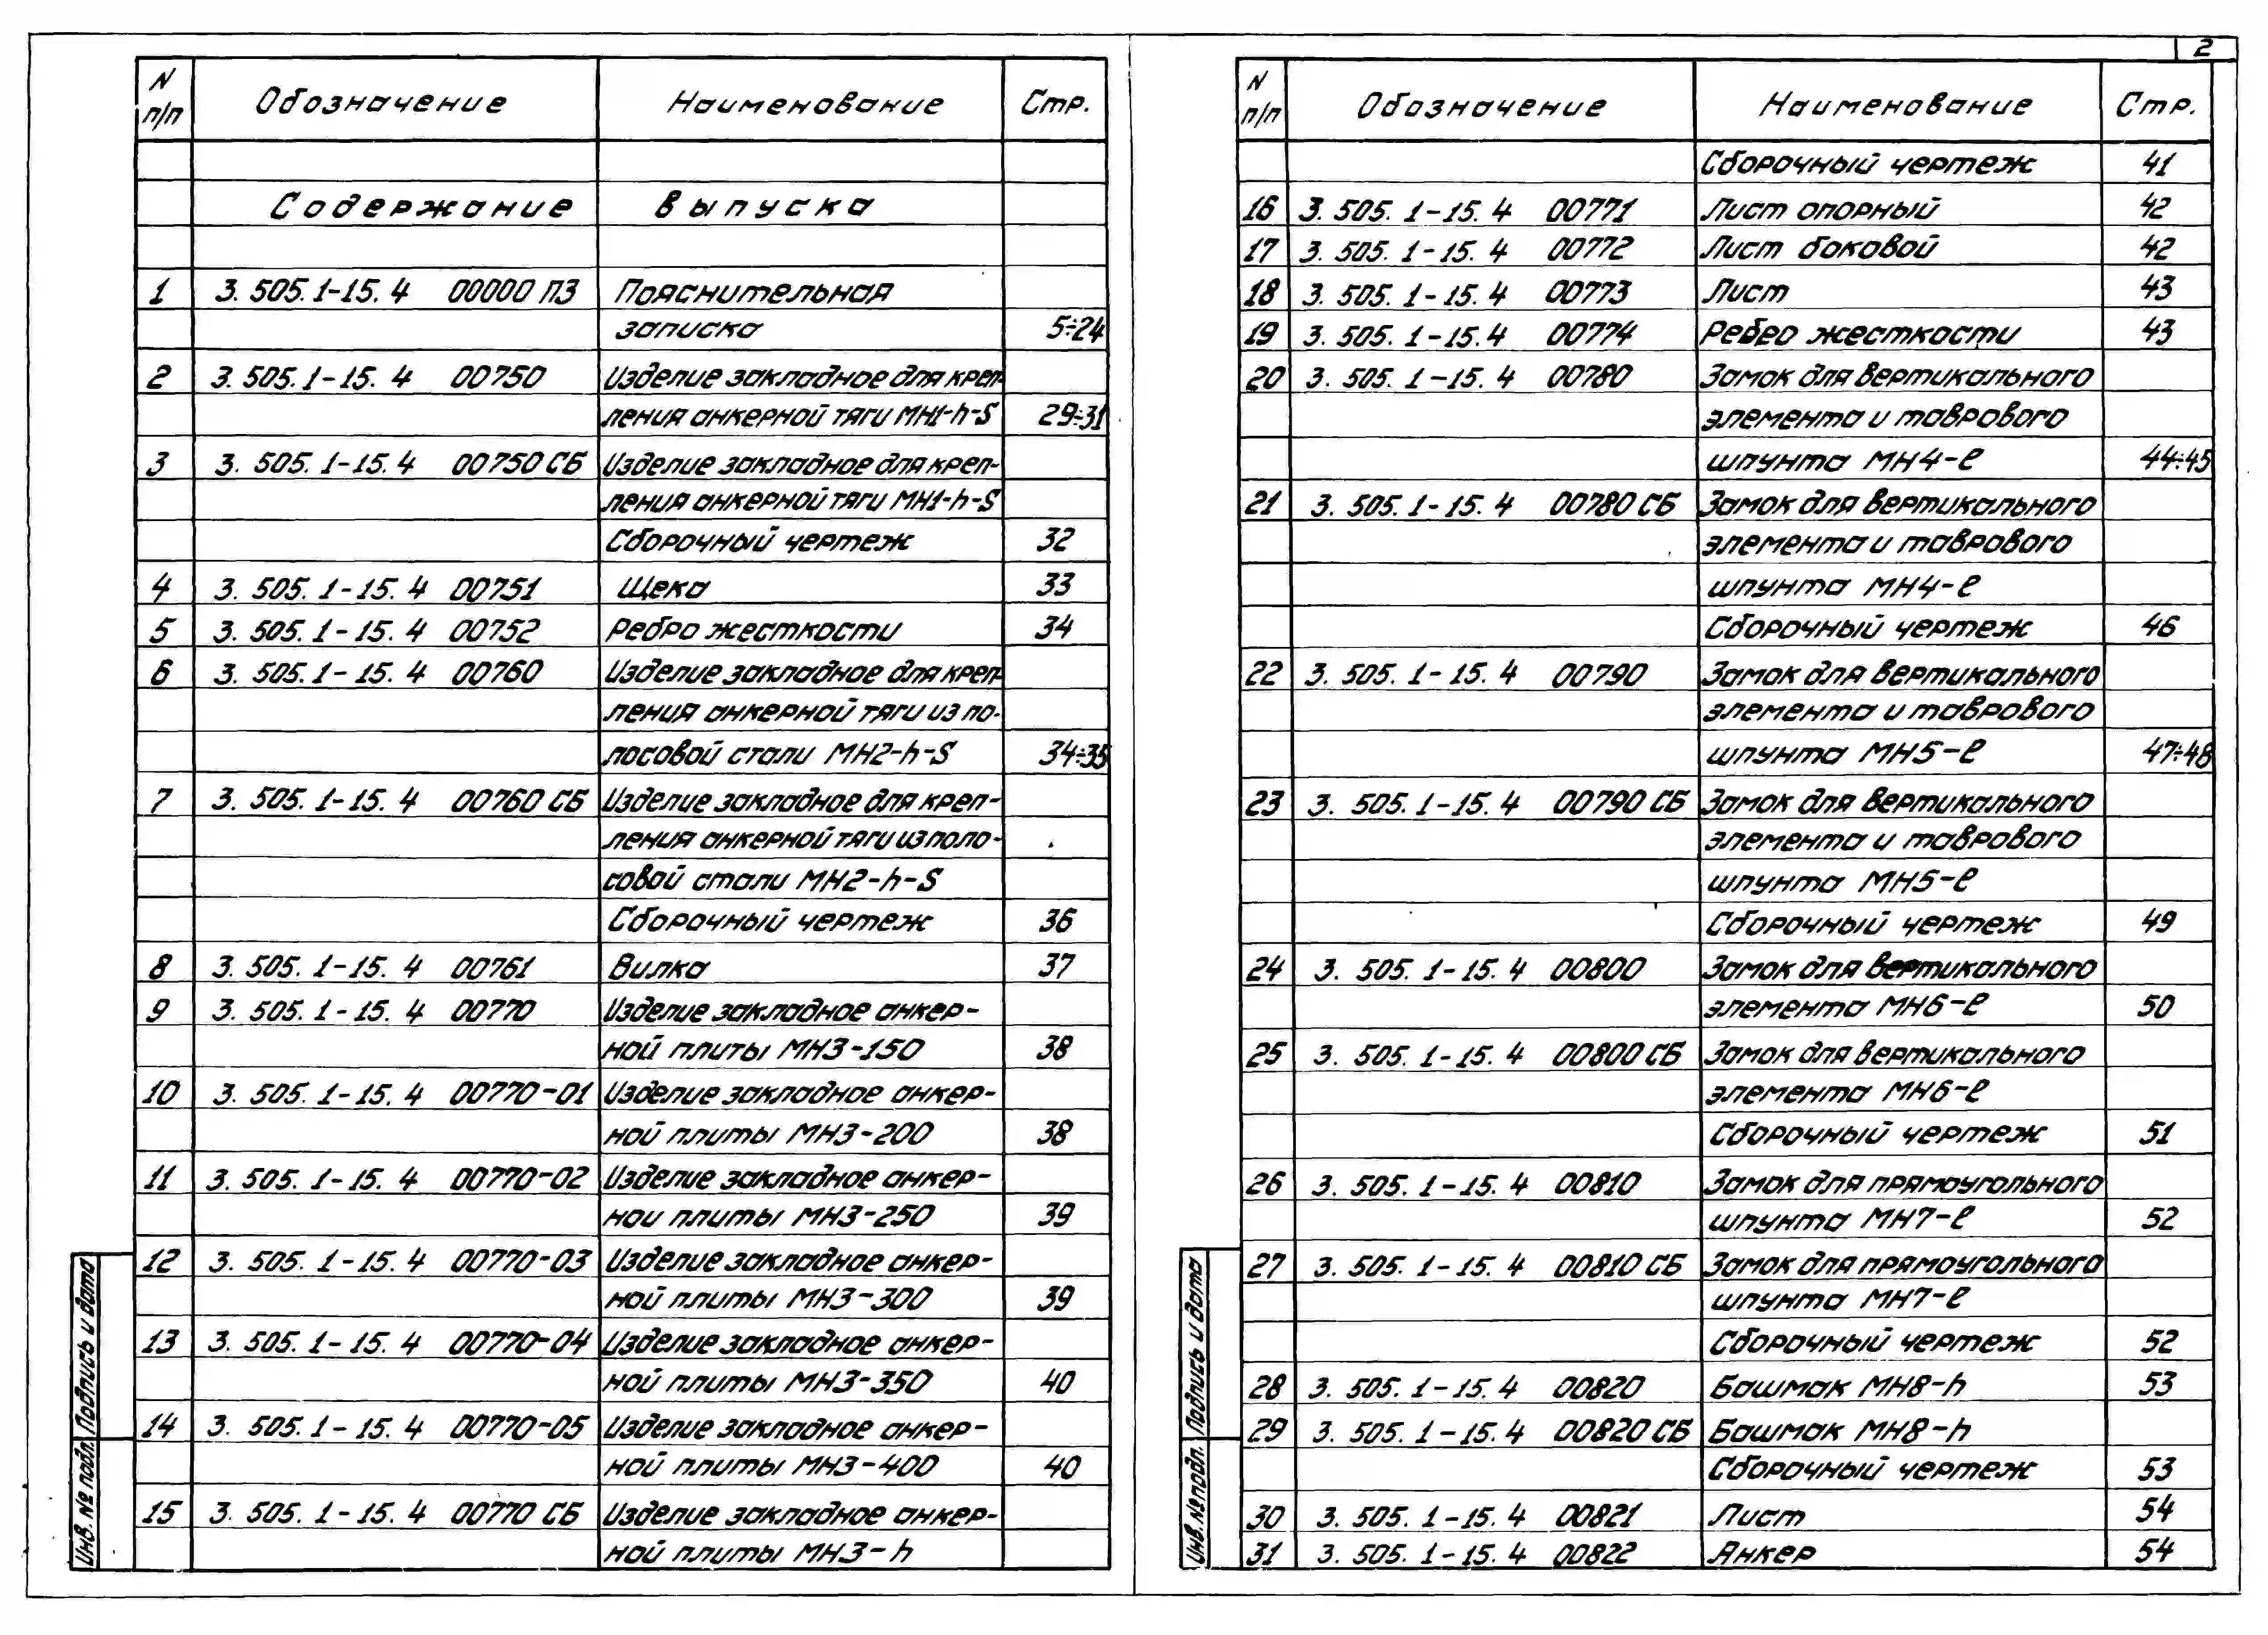 2
N п/п Обозначение Наименование Стр.
Содержание выпуска
1 3.505.1-15.4 00000 ПЗ Пояснительная
записка 5÷24
2 3.505.1-15.4 00750 Изделие закладное для креп-
ления анкерной тяги МН1-h-S 29÷31
3 3.505.1-15.4 00750 СБ Изделие закладное для креп-
ления анкерной тяги МН1-h-S
Сборочный чертеж 32
4 3.505.1-15.4 00751 Щека 33
5 3.505.1-15.4 00752 Ребро жесткости 34
6 3.505.1-15.4 00760 Изделие закладное для креп-
ления анкерной тяги из по-
лосовой стали МН2-h-S 34÷35
7 3.505.1-15.4 00760 СБ Изделие закладное для креп-
ления анкерной тяги из поло-
совой стали МН2-h-S
Сборочный чертеж 36
8 3.505.1-15.4 00761 Вилка 37
9 3.505.1-15.4 00770 Изделие закладное анкер-
ной плиты МН3-150 38
10 3.505.1-15.4 00770-01 Изделие закладное анкер-
ной плиты МН3-200 38
11 3.505.1-15.4 00770-02 Изделие закладное анкер-
ной плиты МН3-250 39
12 3.505.1-15.4 00770-03 Изделие закладное анкер-
ной плиты МН3-300 39
13 3.505.1-15.4 00770-04 Изделие закладное анкер-
ной плиты МН3-350 40
14 3.505.1-15.4 00770-05 Изделие закладное анкер-
ной плиты МН3-400 40
15 3.505.1-15.4 00770 СБ Изделие закладное анкер-
ной плиты МН3-h
Инв. № подл. Подпись и дата
N п/п Обозначение Наименование Стр.
Сборочный чертеж 41
16 3.505.1-15.4 00771 Лист опорный 42
17 3.505.1-15.4 00772 Лист боковой 42
18 3.505.1-15.4 00773 Лист 43
19 3.505.1-15.4 00774 Ребро жесткости 43
20 3.505.1-15.4 00780 Замок для вертикального
элемента и таврового
шпунта МН4-ℓ 44÷45
21 3.505.1-15.4 00780 СБ Замок для вертикального
элемента и таврового
шпунта МН4-ℓ
Сборочный чертеж 46
22 3.505.1-15.4 00790 Замок для вертикального
элемента и таврового
шпунта МН5-ℓ 47÷48
23 3.505.1-15.4 00790 СБ Замок для вертикального
элемента и таврового
шпунта МН5-ℓ
Сборочный чертеж 49
24 3.505.1-15.4 00800 Замок для вертикального
элемента МН6-ℓ 50
25 3.505.1-15.4 00800 СБ Замок для вертикального
элемента МН6-ℓ
Сборочный чертеж 51
26 3.505.1-15.4 00810 Замок для прямоугольного
шпунта МН7-ℓ 52
27 3.505.1-15.4 00810 СБ Замок для прямоугольного
шпунта МН7-ℓ
Сборочный чертеж 52
28 3.505.1-15.4 00820 Башмак МН8-h 53
29 3.505.1-15.4 00820 СБ Башмак МН8-h
Сборочный чертеж 53
30 3.505.1-15.4 00821 Лист 54
31 3.505.1-15.4 00822 Анкер 54
Инв. № подл. Подпись и дата